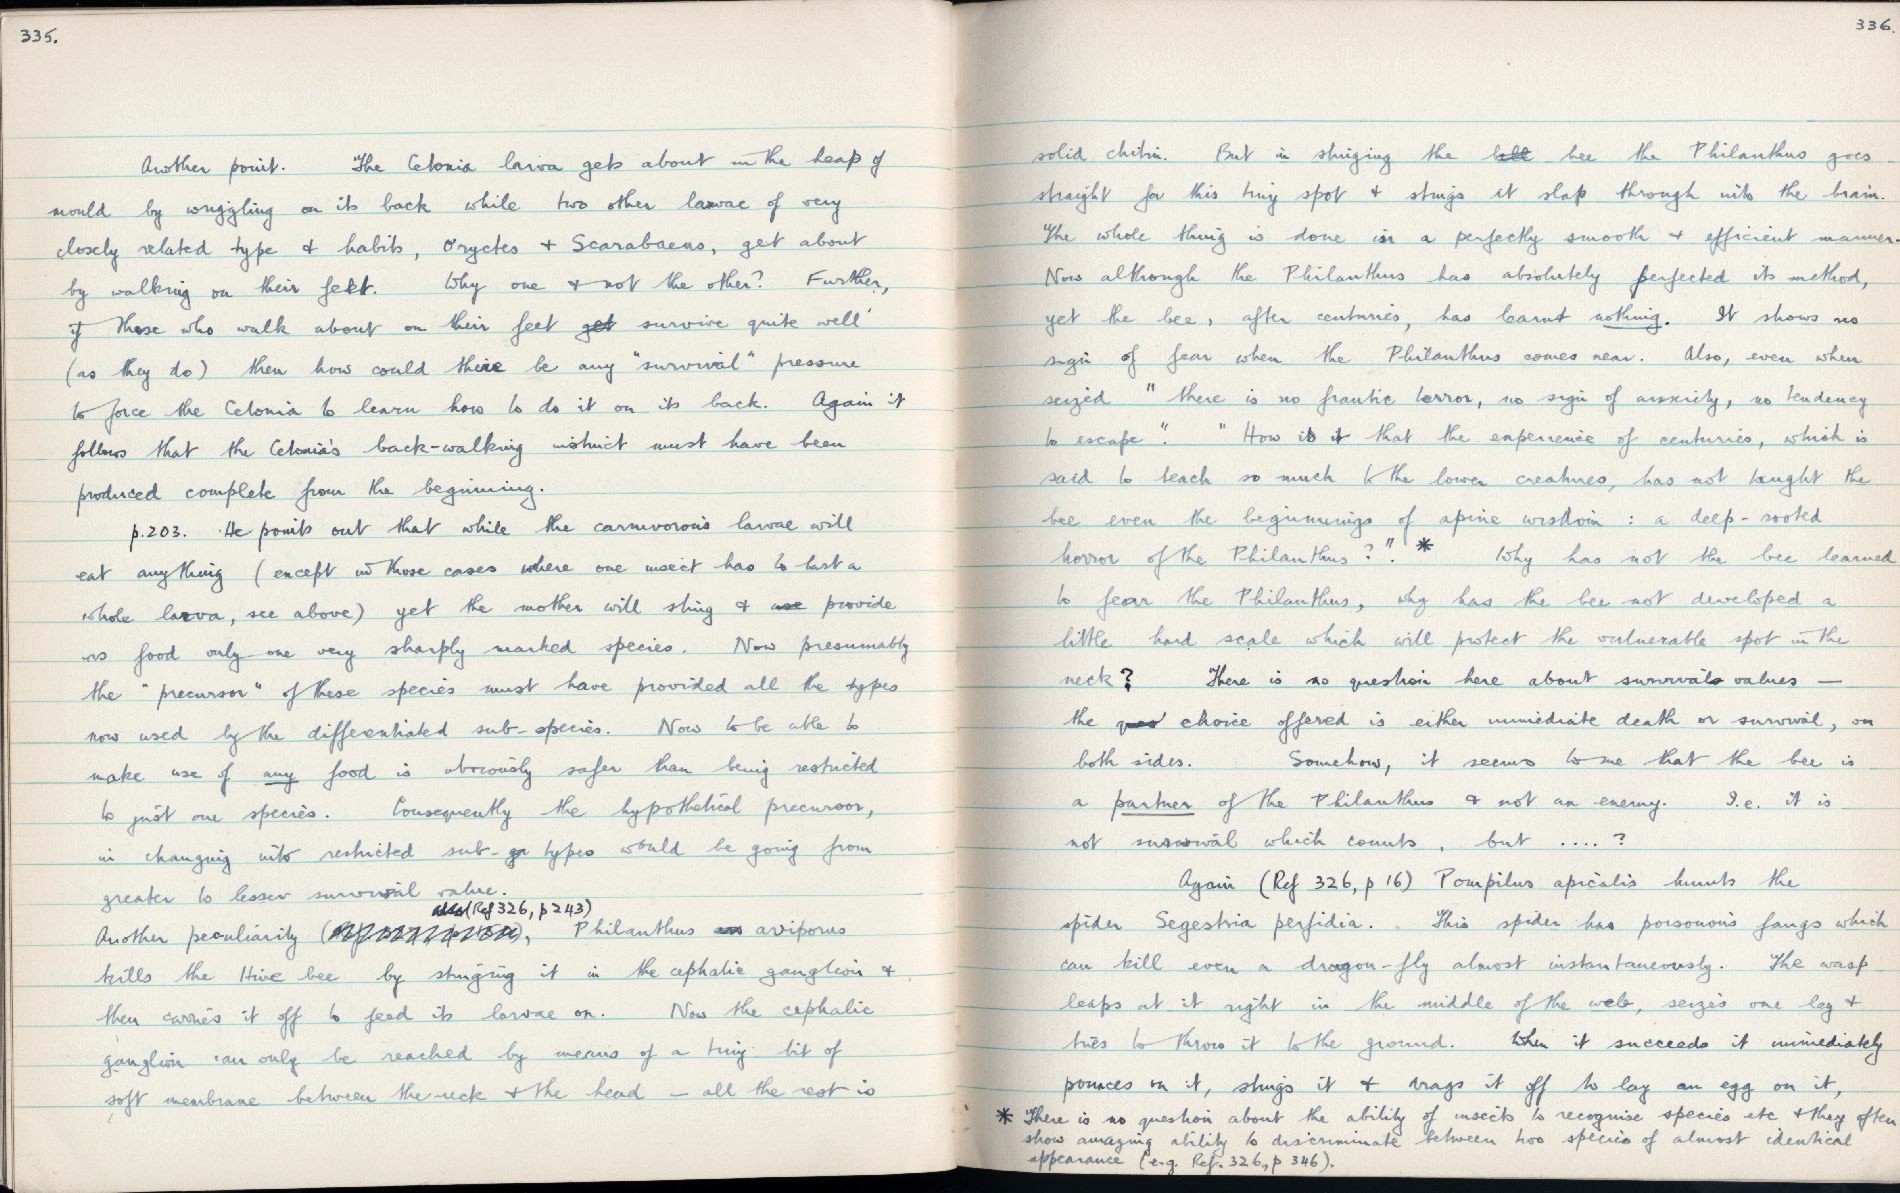 335.
Another point. The Cetonia larva gets about in the heap of
mould by wriggling on its back while two other larvae of very
closely related type & habits, Oryctes & Scarabaeus, get about
by walking on their feet. Why one & not the other? Further,
if those who walk about on their feet get survive quite well
(as they do) then how could there be any "survival" pressure
to force the Cetonia to learn how to do it on its back. Again it
follows that the Cetonia's back-walking instinct must have been
produced complete from the beginning.
p.203. He points out that while the carnivorous larvae will
eat anything (except in those cases where one insect has to last a
whole larva, see above) yet the mother will sting & use provide
as food only one very sharply marked species. Now presumably
the "precursor" of these species must have provided all the types
now used by the differentiated sub-species. Now to be able to
make use of any food is obviously safer than being restricted
to just one species. Consequently the hypothetical precursor,
in changing into restricted sub-gr types would be going from
greater to lesser survival value.
also (Ref 326, p243)
Another peculiarity, Philanthus an aviporus
kills the Hive bee by stinging it in the cephalic ganglion &
then carries it off to feed its larvae on. Now the cephalic
ganglion can only be reached by means of a tiny bit of
soft membrane between the neck & the head — all the rest is
336.
solid chitin. But in stinging the bee the Philanthus goes
straight for this tiny spot & stings it slap through into the brain.
The whole thing is done in a perfectly smooth & efficient manner.
Now although the Philanthus has absolutely perfected its method,
yet the bee, after centuries, has learnt nothing. It shows no
sign of fear when the Philanthus comes near. Also, even when
seized "there is no frantic terror, no sign of anxiety, no tendency
to escape". "How is it that the experience of centuries, which is
said to teach so much to the lower creatures, has not taught the
bee even the beginnings of apine wisdom : a deep-rooted
horror of the Philanthus?". * Why has not the bee learned
to fear the Philanthus, why has the bee not developed a
little hard scale which will protect the vulnerable spot in the
neck? There is no question here about survival values —
the ques choice offered is either immediate death or survival, on
both sides. Somehow, it seems to me that the bee is
a partner of the Philanthus & not an enemy. I.e. it is
not survival which counts, but ....?
Again (Ref 326, p 16) Pompilus apicalis hunts the
spider Segestria perfidia. This spider has poisonous fangs which
can kill even a dragon-fly almost instantaneously. The wasp
leaps at it right in the middle of the web, seizes one leg &
tries to throw it to the ground. When it succeeds it immediately
pounces on it, stings it & drags it off to lay an egg on it,
* There is no question about the ability of insects to recognise species etc & they often
show amazing ability to discriminate between two species of almost identical
appearance (e.g. Ref. 326, p 346).